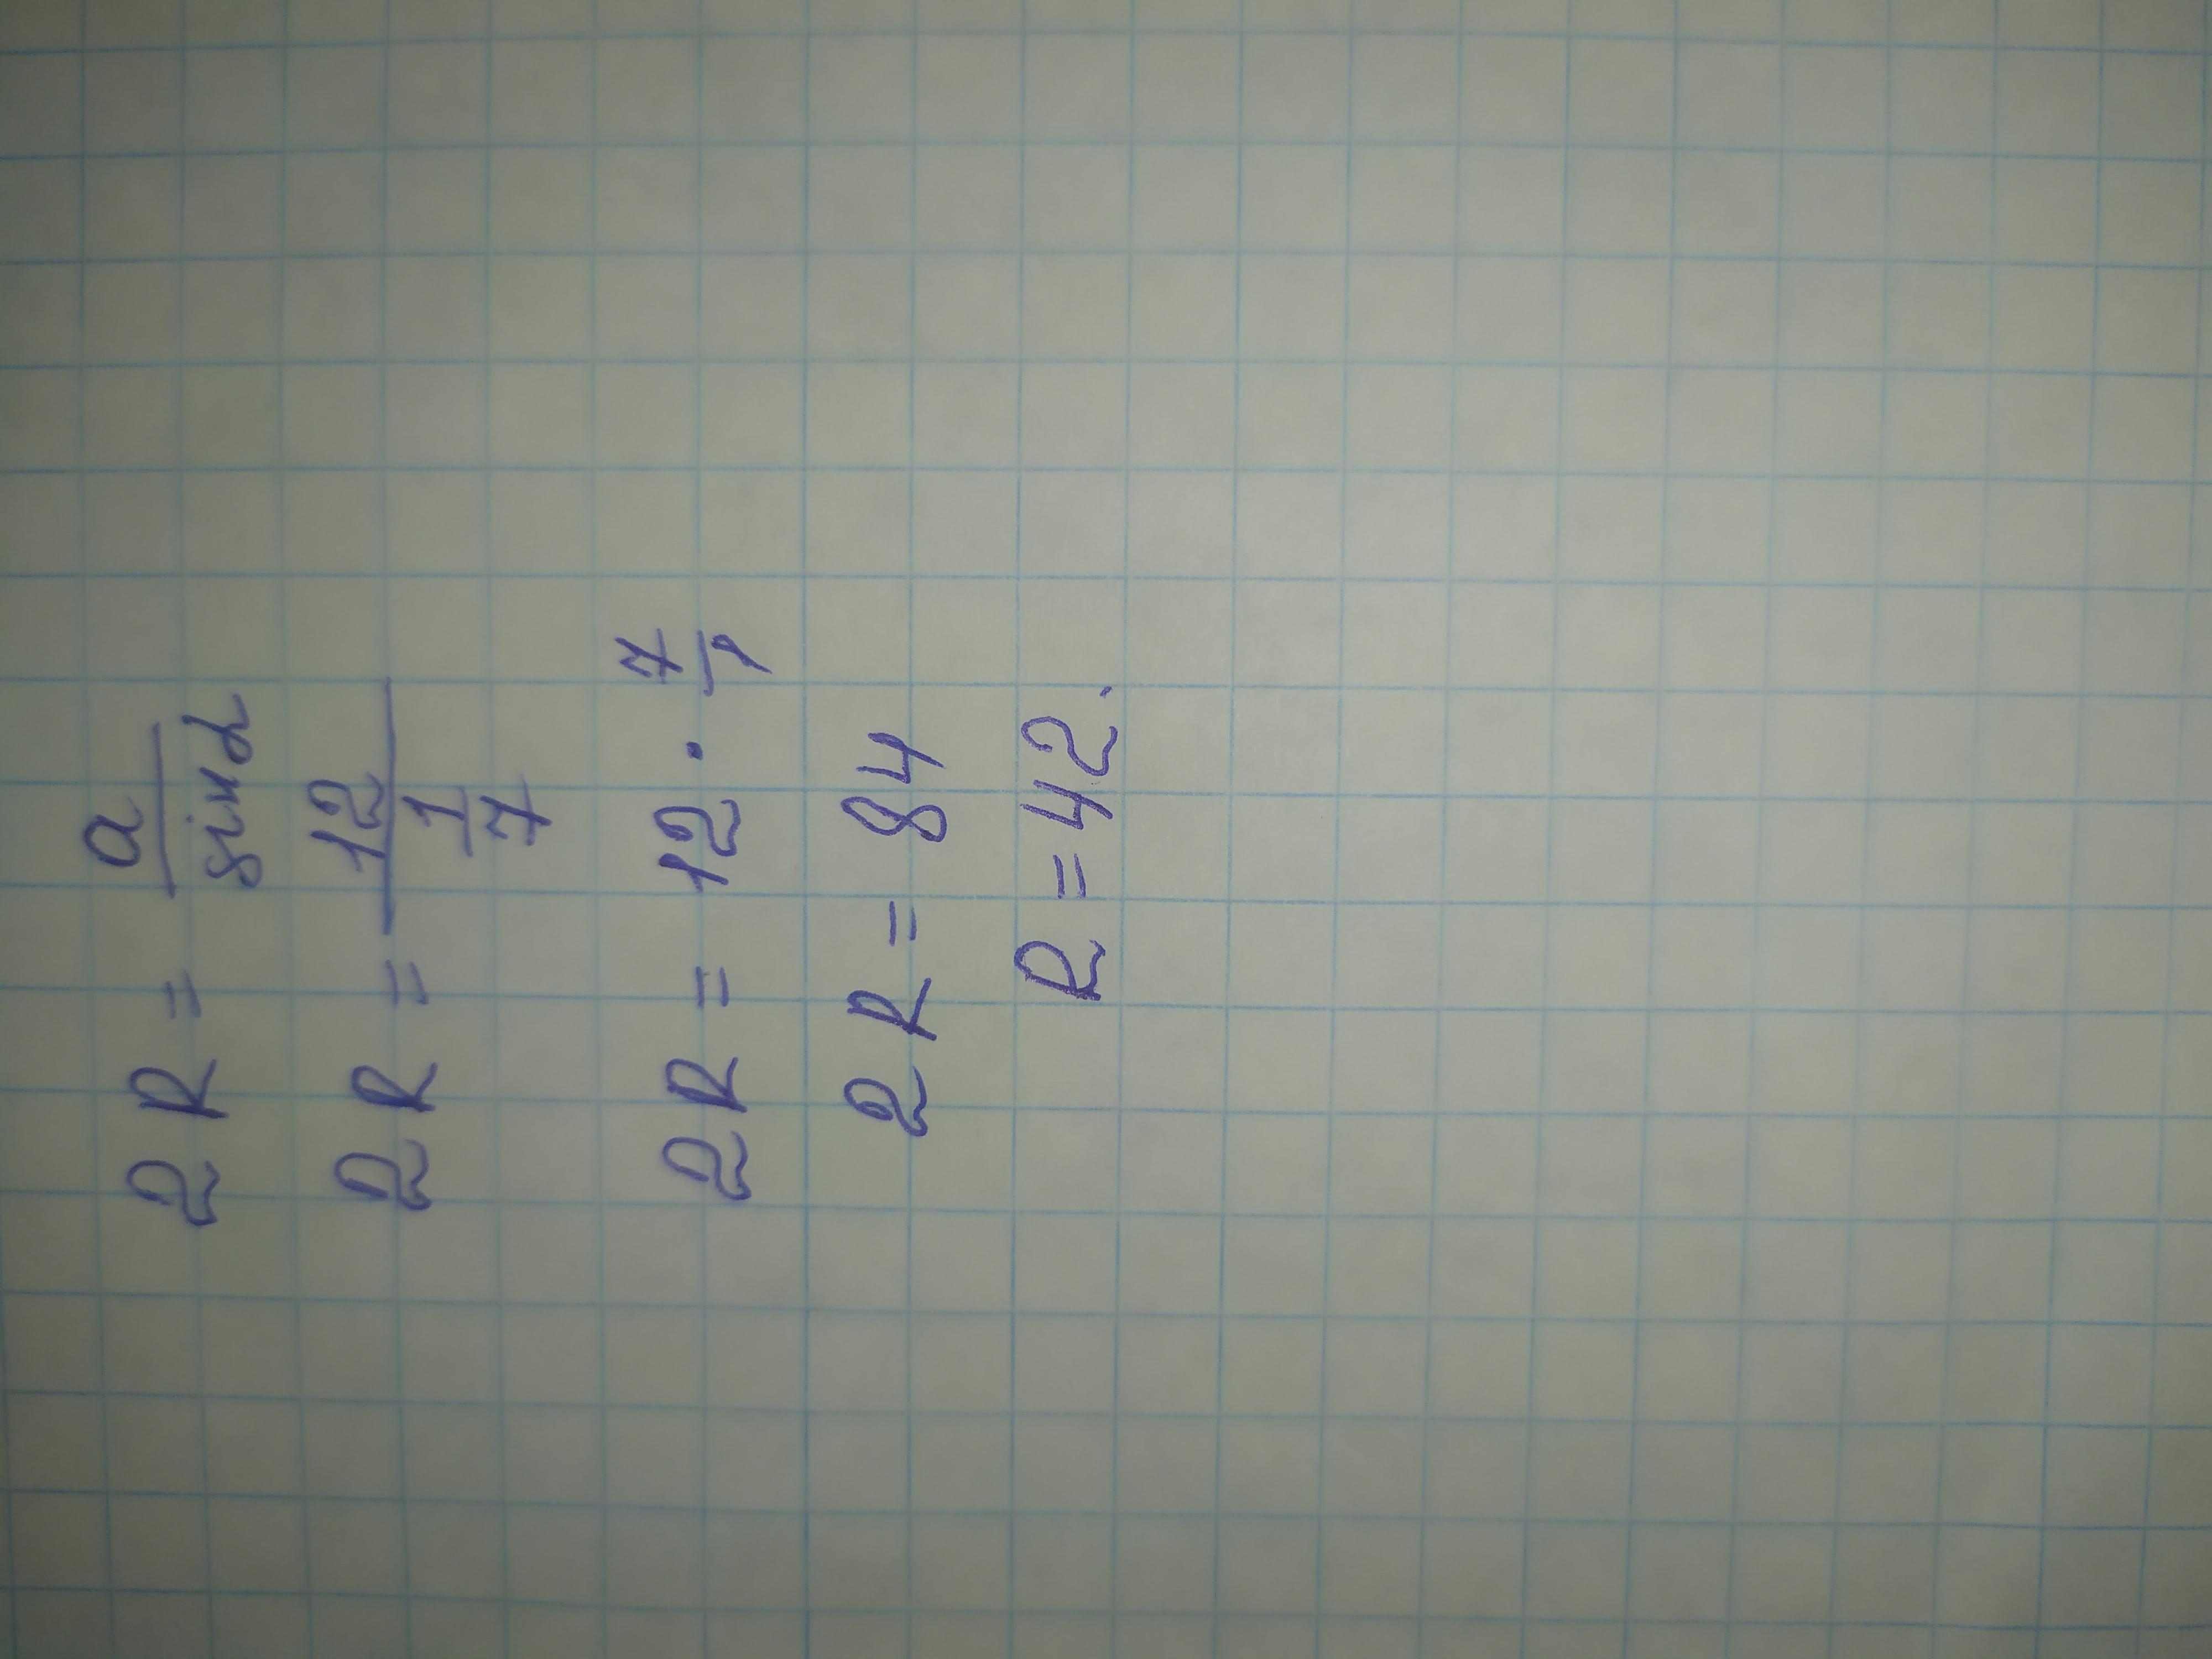 2R = a/sinα
2R = 12/(1/7)
2R = 12 · 7/1
2R = 84
R = 42.